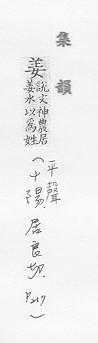 集韻
姜說文神農居
姜水以爲姓
(平聲
十陽居良切 P217)